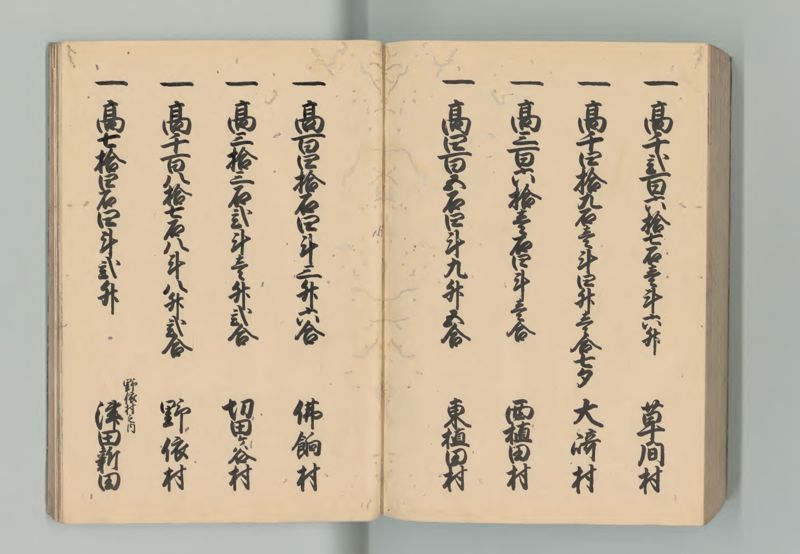 一 高千弐百六拾七石壱斗六升 草間村
一 高千四拾九石壱斗四升壱合七夕 大崎村
一 高三百六拾壱石四斗壱合 西植田村
一 高四百五石四斗九升五合 東植田村
一 高百四拾石四斗三升六合 佛餉村
一 高三拾三石弐斗壱升弐合 切田ヶ谷村
一 高千百八拾七石八斗八升弐合 野依村
一 高七拾四石四斗弐升 野依村之内 津田新田